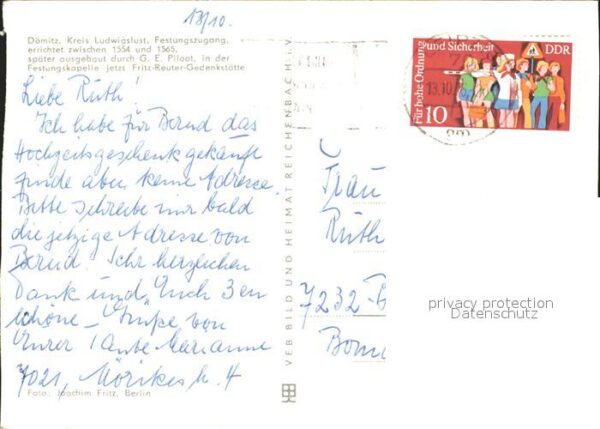 18/10.
Dömitz, Kreis Ludwigslust, Festungszugang,
errichtet zwischen 1554 und 1565,
später ausgebaut durch G. E. Piloot, in der
Festungskapelle jetzt Fritz-Reuter-Gedenkstätte
Liebe Ruth!
Ich habe für Bernd das
Hochzeitsgeschenk gekauft
finde aber keine Adresse.
Bitte schreibe mir bald
die jetzige Adresse von
Bernd. Sehr herzlichen
Dank und Euch 3en
schöne Grüße von
Eurer Tante Marianne
7021, Mörikestr. 4
Foto: Joachim Fritz, Berlin
VEB BILD UND HEIMAT REICHENBACH i. V.
Für hohe Ordnung
und Sicherheit
DDR
10
13.10
Frau
Ruth
7232-B
privacy protection
Datenschutz